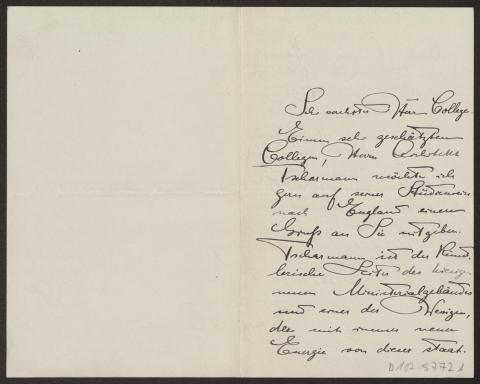 Sehr verehrter Herr College.
Einem sehr geschätzten
Collegen, Herrn Architekt
Tschermann möchte ich
gern auf seiner Studienreise
nach England einen
Gruß an Sie mitgeben.
Tschermann ist der künst-
lerische Leiter des hiesigen
neuen Ministerialgebäudes
und einer der Wenigen,
die mit immer neuer
Energie von dieser staat-
D102-5772